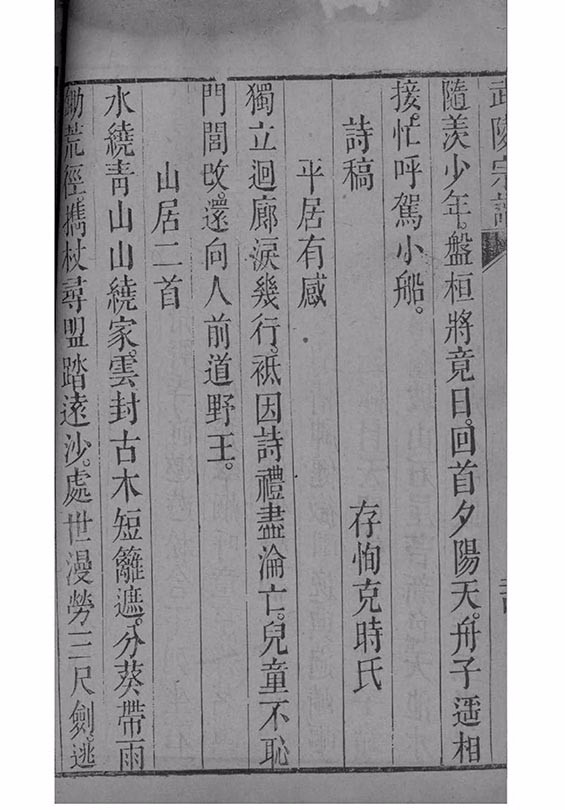 武陵宗譜
隨羨少年。盤桓將竟日。回首夕陽天。舟子遥相
接。忙呼駕小船。
詩稿
存恂克時氏
平居有感
獨立迴廊淚幾行。祗因詩禮盡淪亡。兒童不恥
門閭改。還向人前道野王。
山居二首
水繞青山山繞家。雲封古木短籬遮。分葵帶雨
鋤荒徑。攜杖尋盟踏遠沙。處世漫勞三尺劍。逃